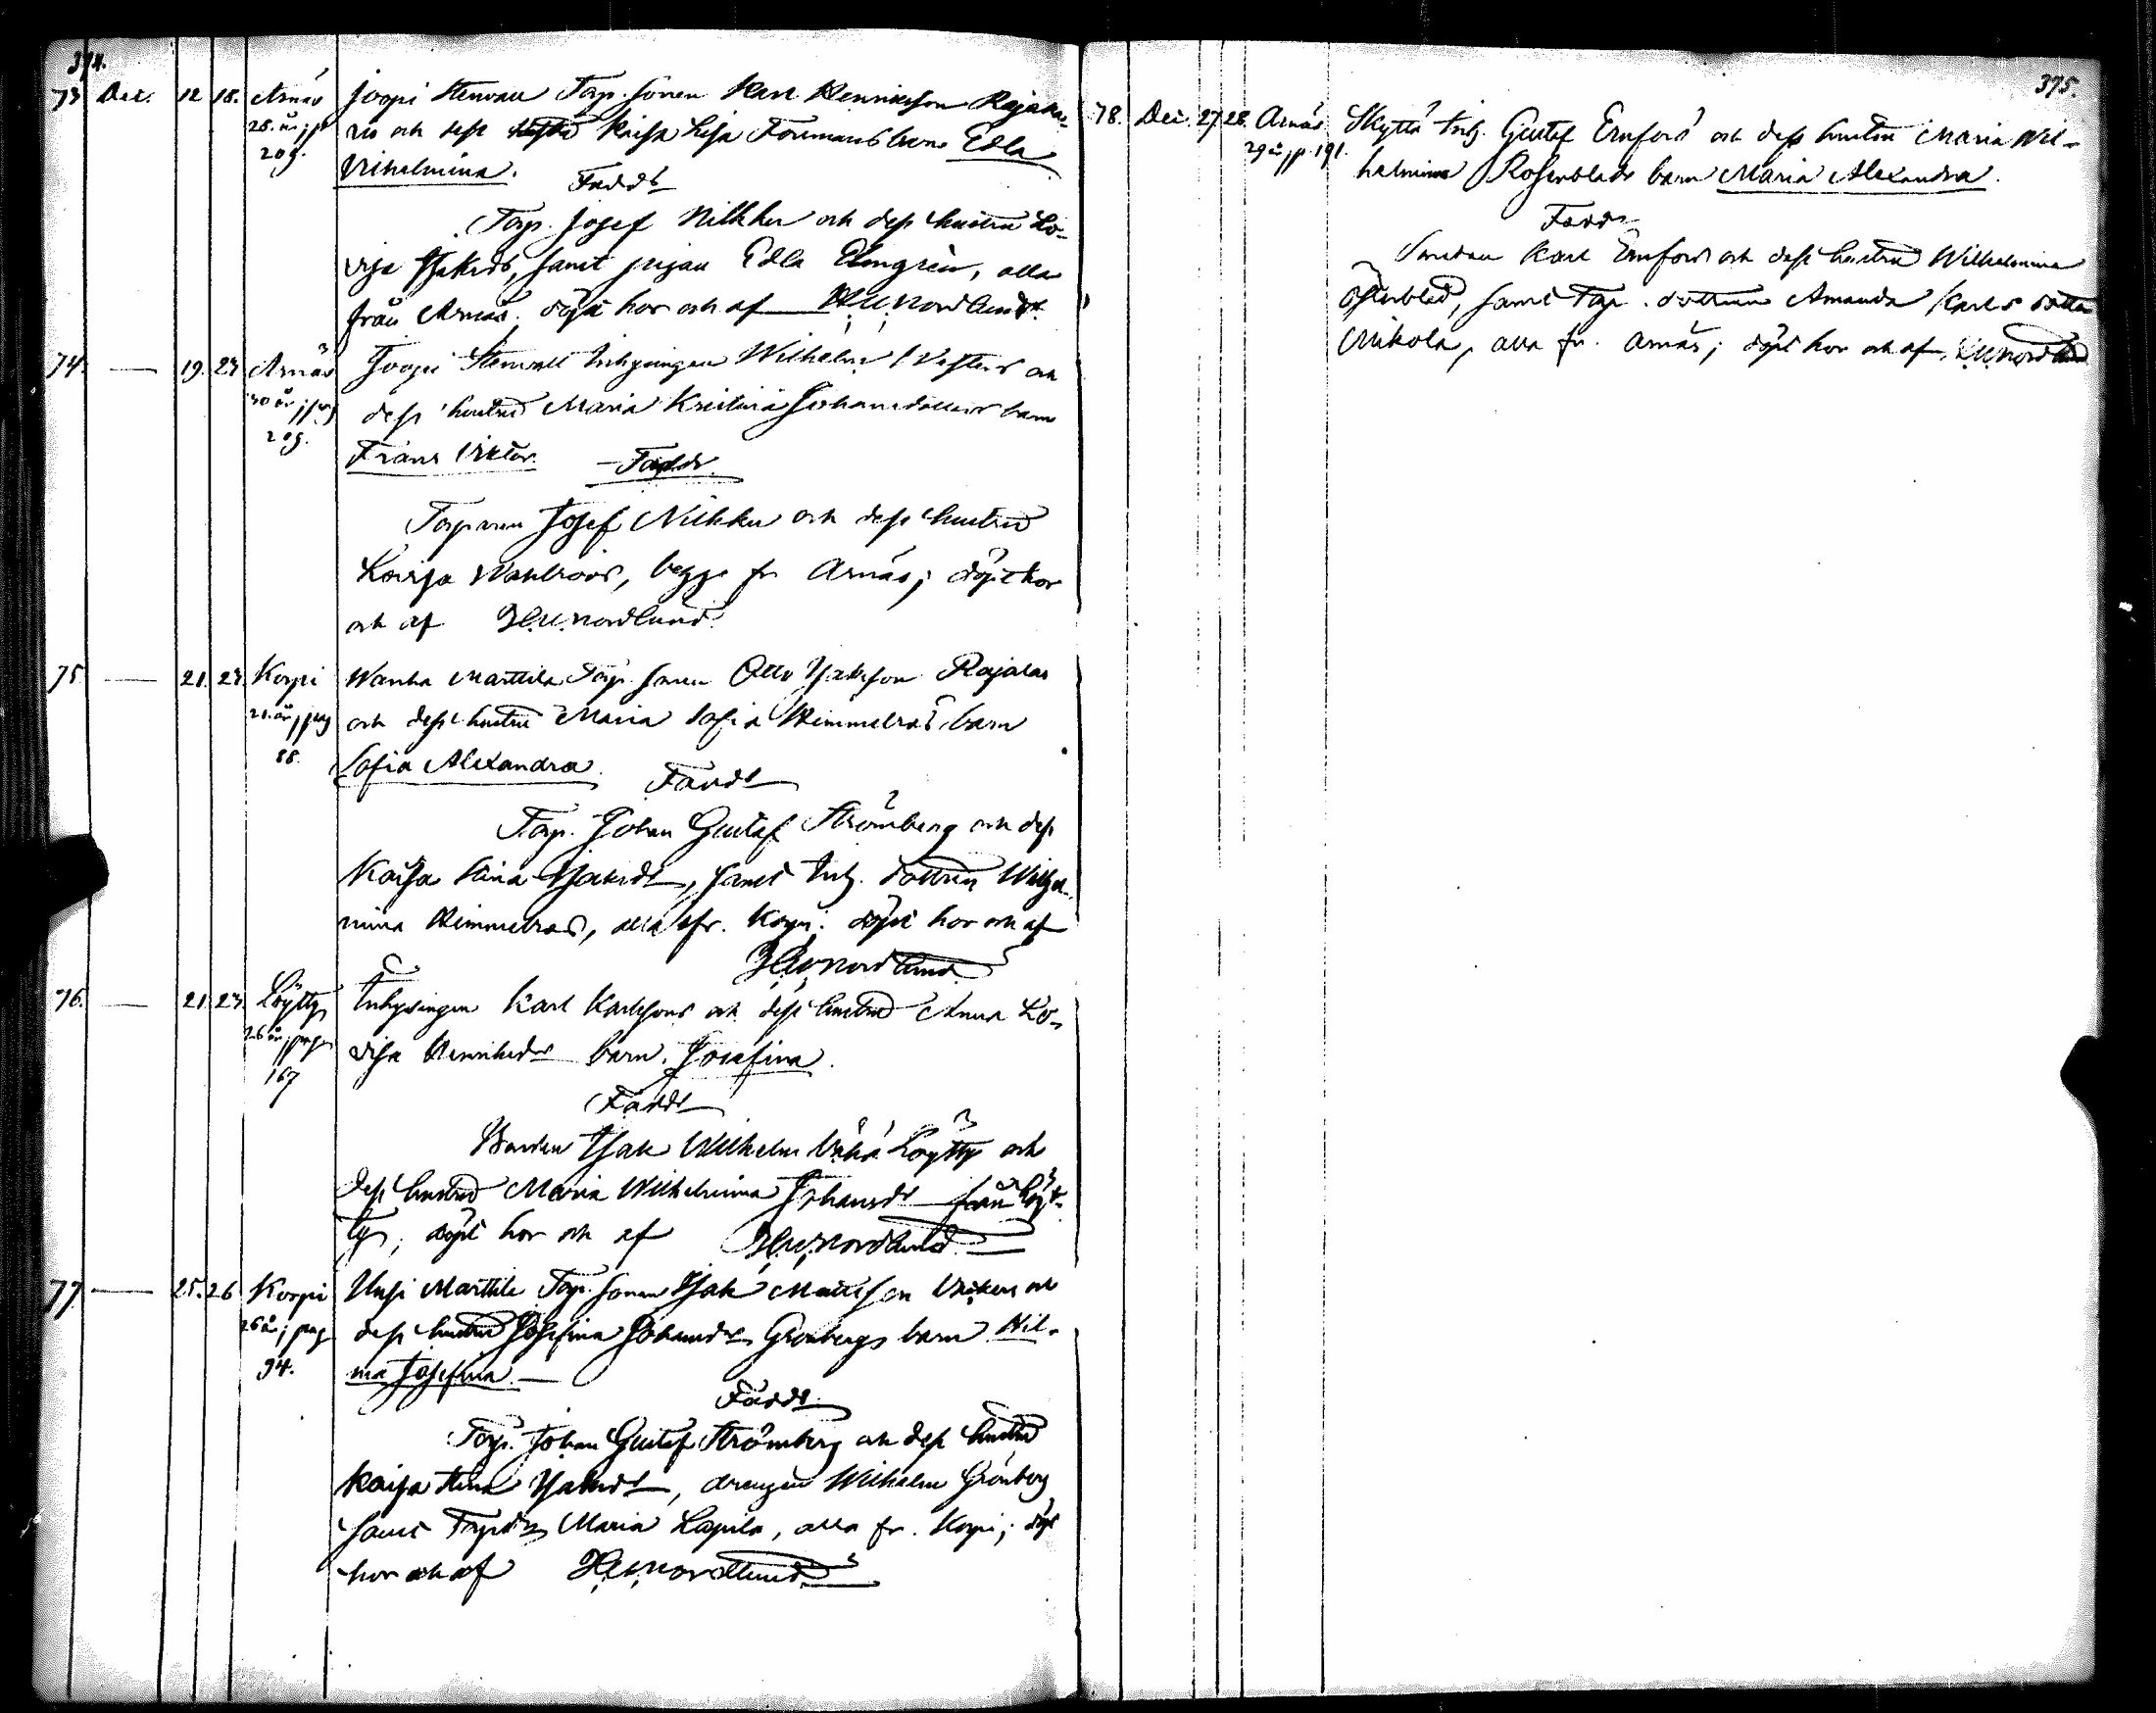 374.
73 Dec. 12 18. Arnäs Joopi Stenvall Torp. sonen Karl Henriksson Rajaka-
28. år; p. ris och dess hustru Kaisa Lisa Foremans barn Edla
209. Vilhelmina.
Fadd.
Torp. Josef Nikku och dess hustru Lo-
visa Isaksd., samt pigan Edla Elmgrén, alla
från Arnäs; döpt hos och af H.U. Nordlund
74. — 19. 23 Arnäs Joopi Stenvall Inhysingen Wilhelm och
30 år; pag dess hustru Maria Kristina Johansdotters barn
209. Frans Viktor. Faddr.
Torparen Josef Nikku och dess hustru
Lovisa Wahlroos, begge fr. Arnäs; döpt hos
och af H.U. Nordlund
75. — 21. 23. Korpi Wanha Marttila Torp. sonen Otto Isaksson Rajalas
21. år, pag och dess hustru Maria Sofia Himmelroos barn
88. Sofia Alexandra.
Faddr
Torp. Johan Gustaf Strömberg och dess
Kaisa Stina Isaksdr, samt Inh. dottren Wilhel-
mina Himmelroos, alla fr. Korpi. döpt hos och af
H.U. Nordlund
76. — 21. 23. Löytty Inhysingen Karl Karlssons och dess hustru Anna Lo-
26 år; pag visa Henriksdrs barn. Josefina.
167
Faddr
Bonden Isak Wilhelm Vähä Löytty och
dess hustru Maria Wilhelmina Johansdr från Löyt-
ty; döpt hos och af H.U. Nordlund
77. — 25. 26 Korpi Uusi Marttila Torp. sonen Isak Mattsson och
26 år; pag dess hustru Josefina Johansdr Grönbergs barn Wil-
94. ma Josefina.
Faddr.
Torp. Johan Gustaf Strömberg och dess hustru
Kaisa Stina Isaksdr, drengen Wilhelm Grönberg
samt Torpdr Maria Lapila, alla fr. Korpi; döpt
hos och af H.U. Nordlund
375.
78. Dec. 27 28. Arnäs Skyttä Inh. Gustaf Ernfors och dess hustru Maria Wil-
29 år p. 191. helmina Rosenblads barn Maria Alexandra.
Faddr
Smeden Karl Ernfors och dess hustru Wilhelmina
Österblad, samt Torp. dottren Amanda Karls dotter
Mikola, alla fr. Arnäs; döpt hos och af H.U. Nordlund